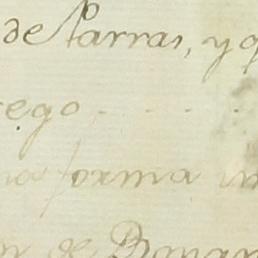 de Parras, y q
ego
forma
de Bonan